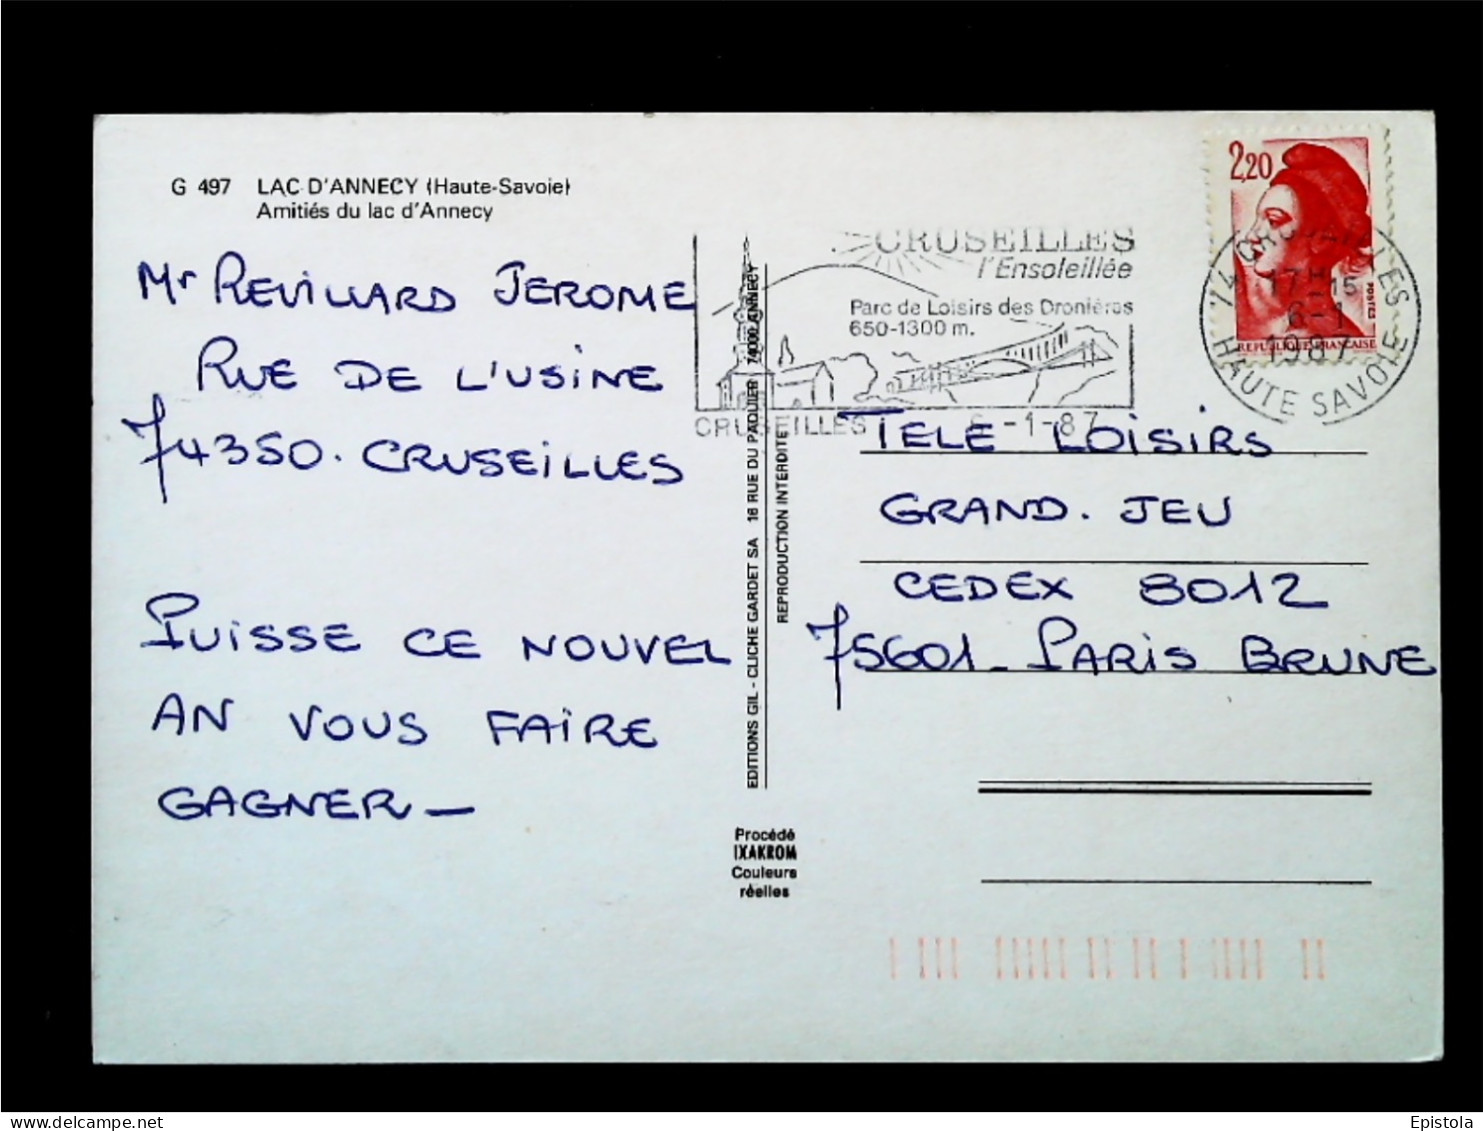 G 497 LAC D'ANNECY (Haute-Savoie)
Amitiés du lac d'Annecy
Mr REVILLARD JEROME
RUE DE L'USINE
74350. CRUSEILLES
PUISSE CE NOUVEL
AN VOUS FAIRE
GAGNER —
EDITIONS GIL - CLICHE GARDET SA 16 RUE DU PAQUIER 74000 ANNECY
REPRODUCTION INTERDITE
Procédé
IXAKROM
Couleurs
réelles
CRUSEILLES
l'Ensoleillée
Parc de Loisirs des Dronières
650-1300 m.
CRUSEILLES 6 -1-87
2,20
POSTES
REPUBLIQUE FRANÇAISE
74 CRUSEILLES
17 H 15
6-1
1987
HAUTE SAVOIE
TELE LOISIRS
GRAND. JEU
CEDEX 8012
75601 - PARIS BRUNE
delcampe.net
Epistola